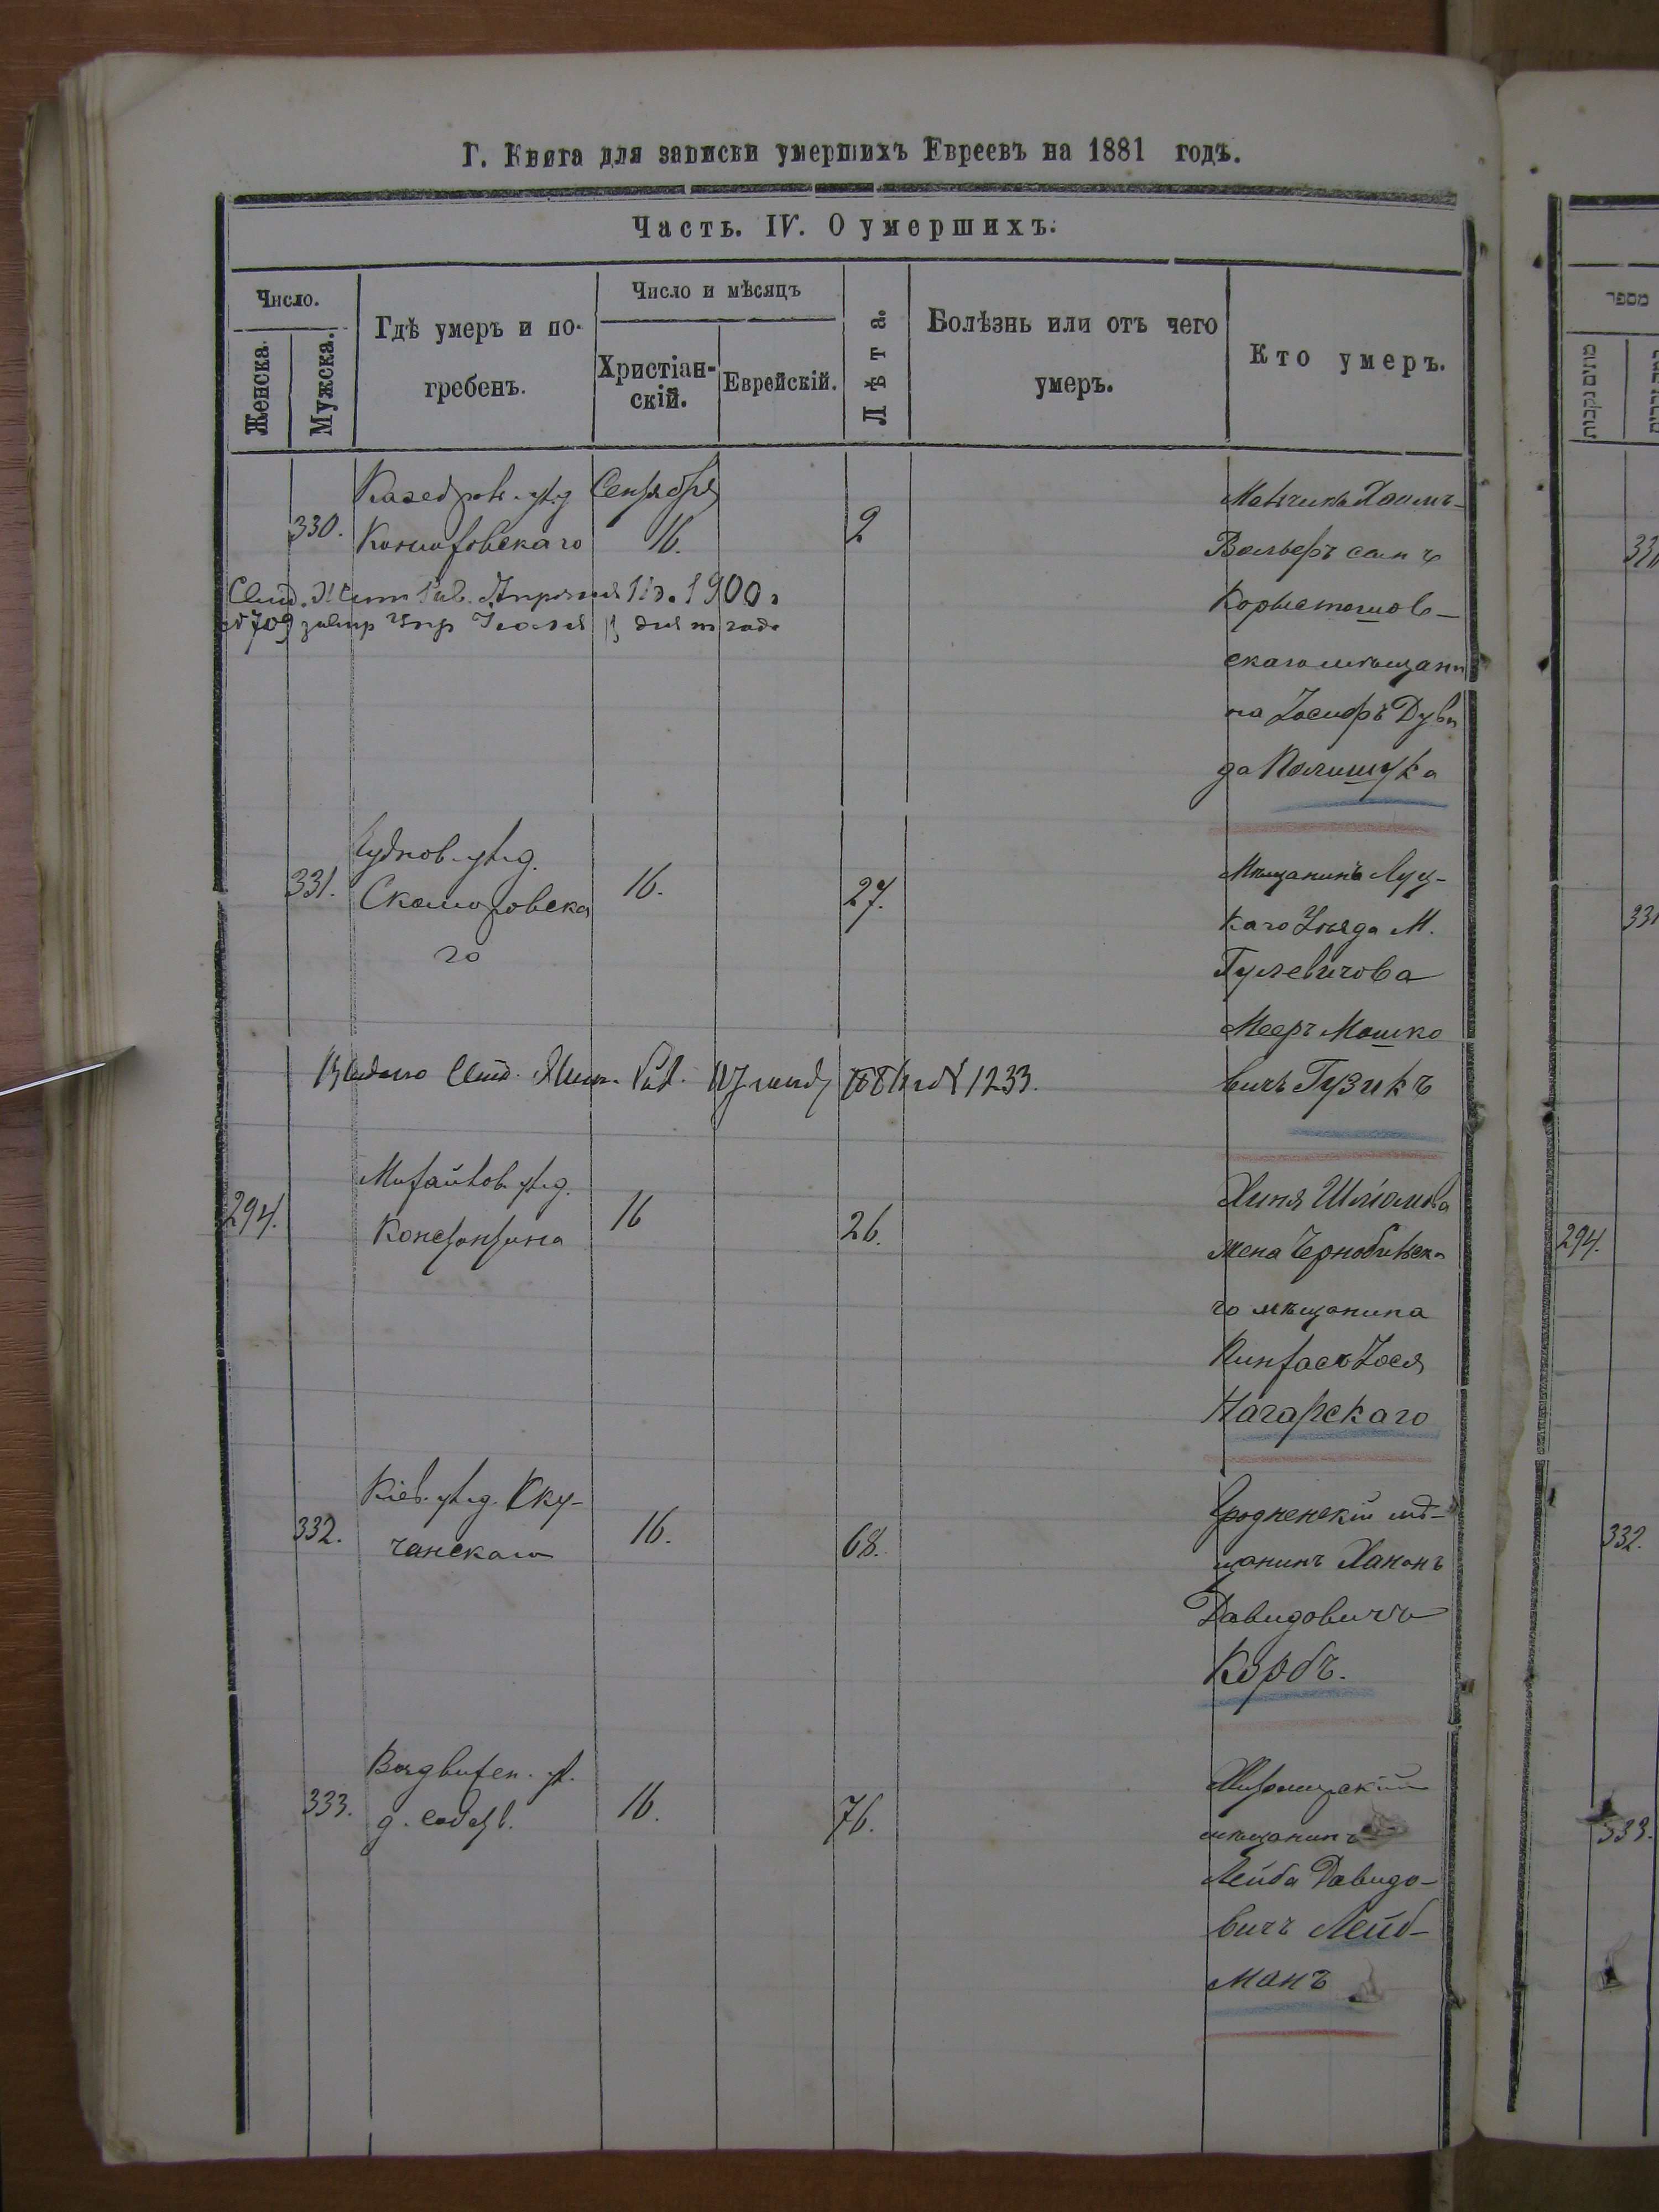 Г. Книга для записки умершихъ Евреевъ на 1881 годъ.
Часть. IV. О умершихъ.
Число.
Женска.
Мужска.
Гдѣ умеръ и по-
гребенъ.
Число и мѣсяцъ
Христіан-
скій.
Еврейскій.
Лѣта.
Болѣзнь или отъ чего
умеръ.
Кто умеръ.
330.
Сентября
16.
2
Мальчикъ Хаимъ-
Вольфъ сынъ
Коростышов-
скаго мѣщани
на Іосифъ Дуви
да Полишука
1900
№ 709
331.
Чудновс. ул. д.
Скоморовска
го
16.
27.
Мѣщанинъ Луц-
каго Уѣзда М.
Гулевичова
Мееръ Мошко
вичъ Гузикъ
Выдано Свид.
№ 1233.
294.
Михайлов. ул. д.
Константина
16
26.
Хиня Шліомова
жена Чернобыльска
го мѣщанина
Пинхасъ Іося
Нагарскаго
332.
Кіев. ул. д. Ску-
чанскаго
16.
68.
Гродненскій мѣ-
щанинъ Хаконъ
Давидовичъ
Корбъ.
333.
д. собств.
16.
76.
Житомирскій
мѣщанинъ
Лейба Давидо-
вичъ Лейб-
манъ
מספר
331
294.
332.
333.